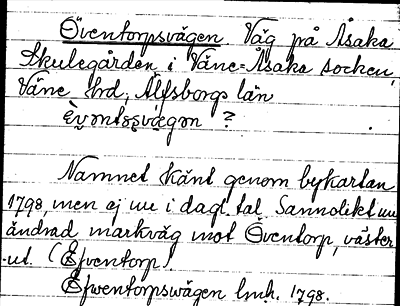 Öventorpsvägen Väg på Åsaka
Skulegården i Väne-Åsaka socken,
Väne hrd, Älfsborgs län
?
Namnet känt genom bykartan
1798, men ej nu i dagl. tal. Sannolikt nu
ändrad markväg mot Öventorp, väster-
-ut. (Efventorp).
Efwentorpswägen lmh. 1798.